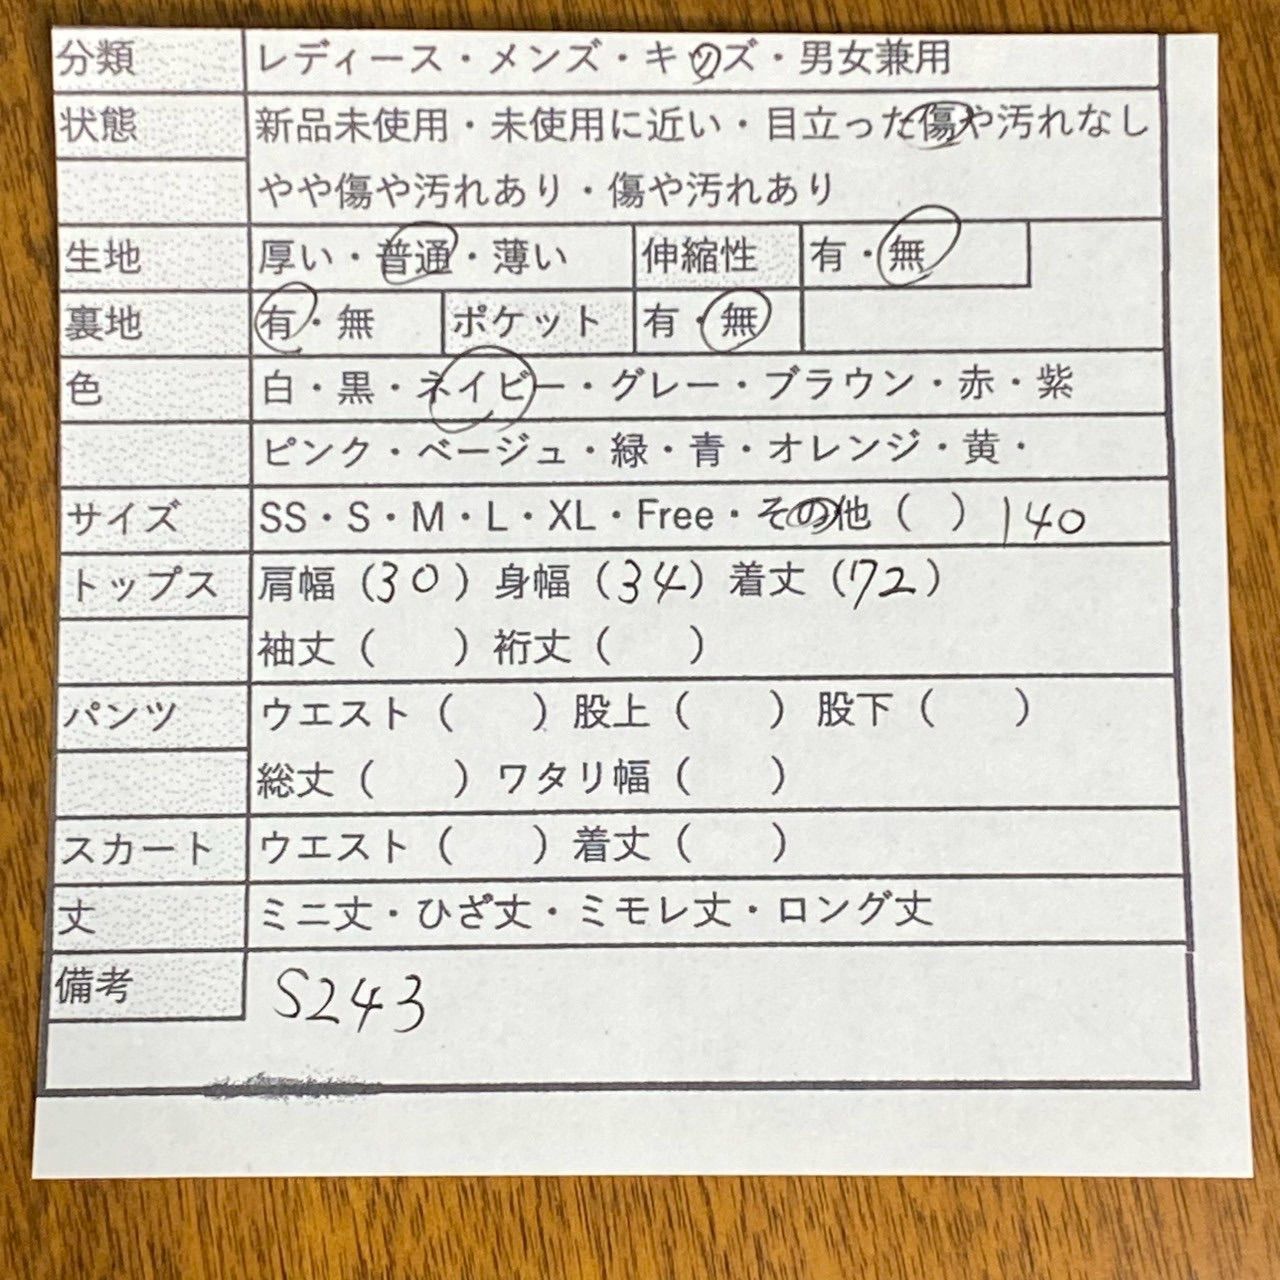 分類 レディース・メンズ・キッズ・男女兼用
状態 新品未使用・未使用に近い・目立った傷や汚れなし
やや傷や汚れあり・傷や汚れあり
生地 厚い・普通・薄い 伸縮性 有・無
裏地 有・無 ポケット 有・無
色 白・黒・ネイビー・グレー・ブラウン・赤・紫
ピンク・ベージュ・緑・青・オレンジ・黄・
サイズ SS・S・M・L・XL・Free・その他（ ）140
トップス 肩幅（30）身幅（34）着丈（72）
袖丈（ ）裄丈（ ）
パンツ ウエスト（ ）股上（ ）股下（ ）
総丈（ ）ワタリ幅（ ）
スカート ウエスト（ ）着丈（ ）
丈 ミニ丈・ひざ丈・ミモレ丈・ロング丈
備考 S243